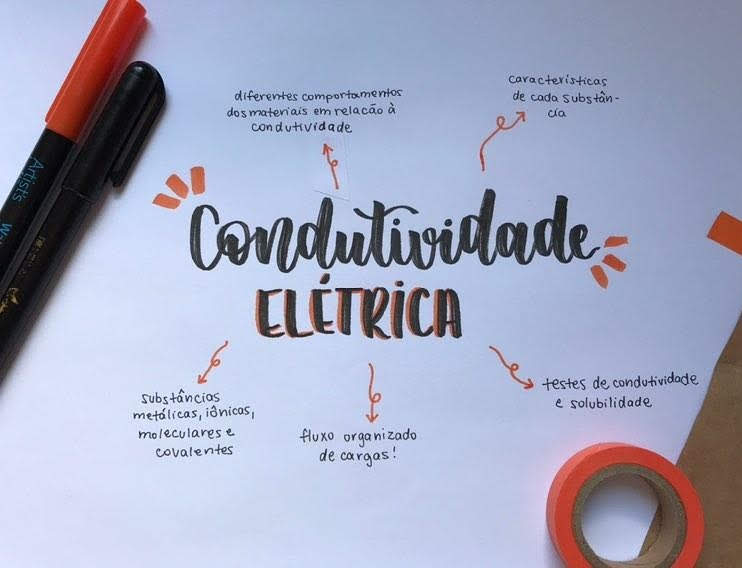 diferentes comportamentos
dos materiais em relacão à
condutividade
características
de cada substân-
cia
Condutividade
ELÉTRICA
substâncias
metálicas, iônicas,
moleculares e
covalentes
fluxo organizado
de cargas!
testes de condutividade
e solubilidade
Artist's